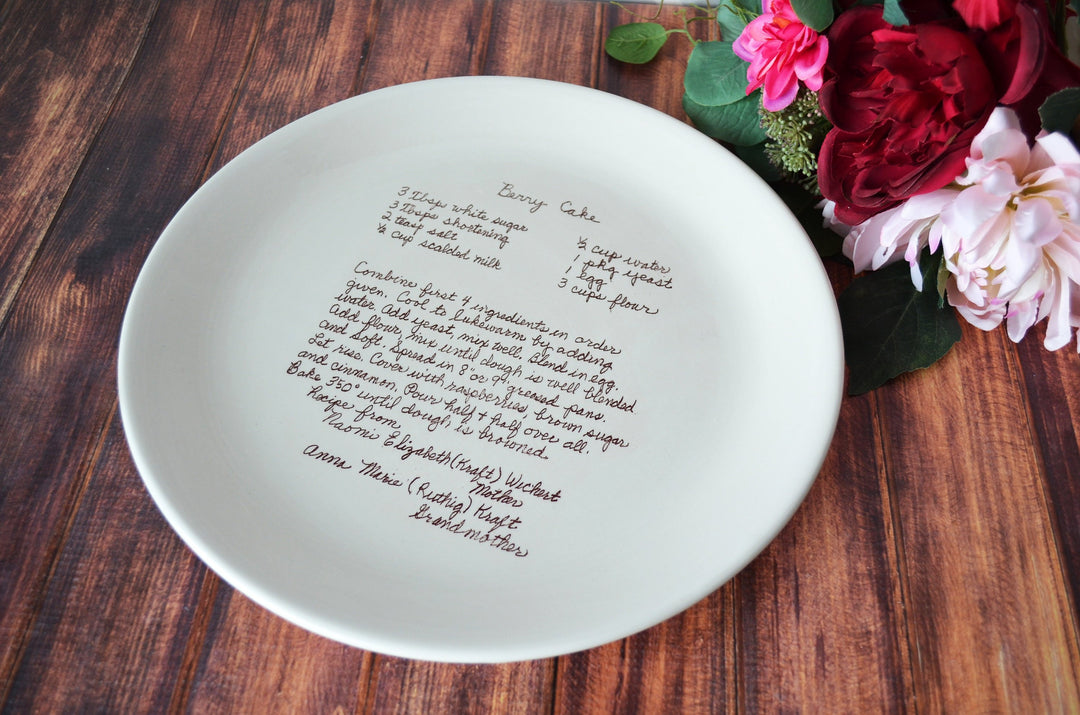 Berry Cake
3 Tbsp white sugar
3 Tbsps shortening
2 teasp salt
¼ cup scalded milk
½ cup water
1 pkg yeast
1 egg
3 cups flour
Combine first 4 ingredients in order
given. Cool to lukewarm by adding
water. Add yeast, mix well. Blend in egg.
Add flour, mix until dough is well blended
and soft. Spread in 8" or 9" greased pans.
Let rise. Cover with raspberries, brown sugar
and cinnamon. Pour half + half over all.
Bake 350° until dough is browned.
Recipe from
Naomi Elizabeth (Kraft) Wichert
Mother
Anna Marie (Ruthig) Kraft
Grandmother